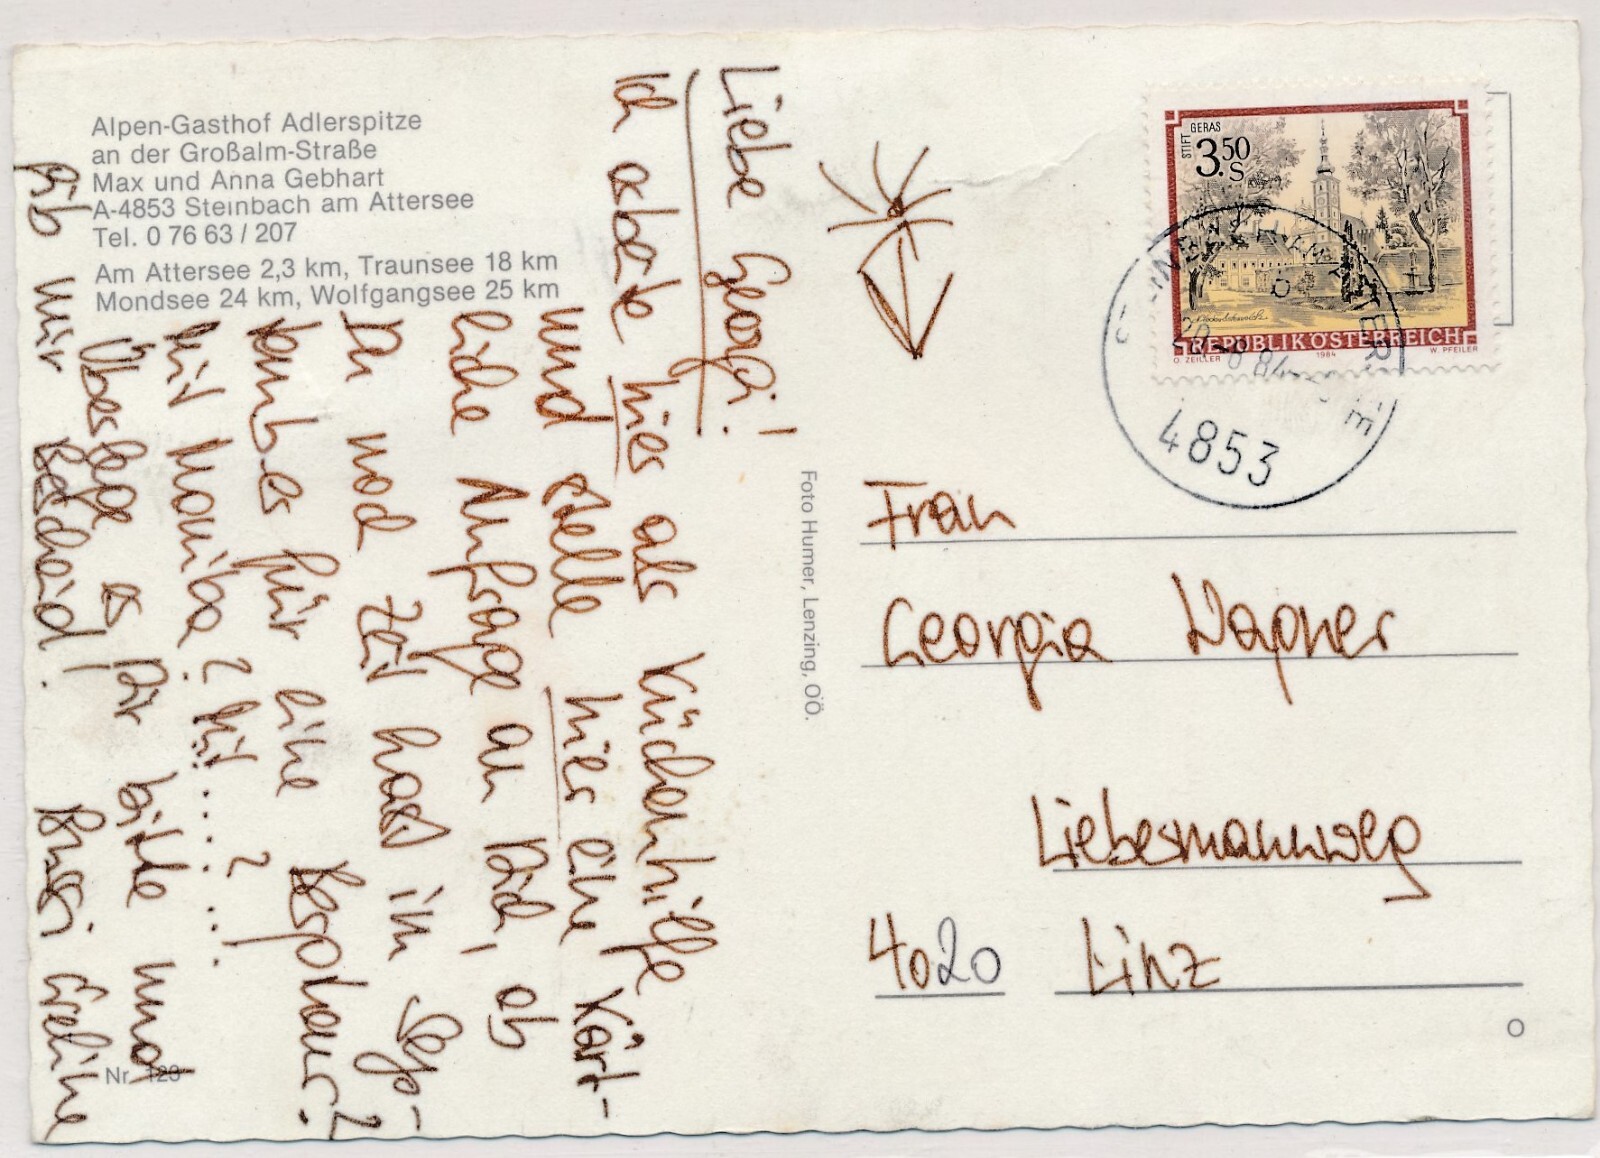 Alpen-Gasthof Adlerspitze
an der Großalm-Straße
Max und Anna Gebhart
A-4853 Steinbach am Attersee
Tel. 0 76 63 / 207
Am Attersee 2,3 km, Traunsee 18 km
Mondsee 24 km, Wolfgangsee 25 km
Liebe Georgi!
Ich arbeite hier als Küchenhilfe
und stelle hier eine Kärt-
liche Anfrage an Dich, ob
Du noch Zeit hast im Sep-
tember für eine Bergtour?
Mit Monika? Mit ........?
Überlege es Dir bitte und
gib mir Bescheid! Bussi Eveline
Nr. 123
Foto Humer, Lenzing, OÖ.
STIFT GERAS
3.50 S
REPUBLIK ÖSTERREICH
O. ZEILLER 1984 W. PFEILER
STEINBACH AM ATTERSEE
-8.84
4853
Frau
Georgia Wagner
Liebesmannweg
4020 Linz